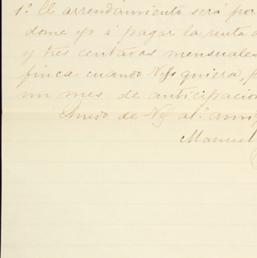 1.ª El arrendamiento será por
dome yo á pagar la renta d
y tres centavos mensuales
finca cuando Vd quiera, p
un mes de anticipacion
de Vd
Manuel